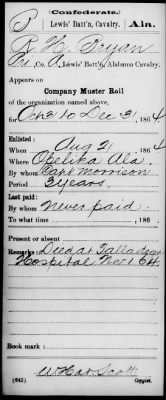 (Confederate.)
B Lewis' Batt'n, Cavalry. Ala.
R H Bryan
Pvt, Co. A, Lewis' Batt'n, Alabama Cavalry.
Appears on
Company Muster Roll
of the organization named above,
for Oct 31 to Dec 31, 1864
Enlisted:
When Aug 21, 1864
Where Opelika Ala.
By whom Capt Morrison
Period 3 years.
Last paid:
By whom Never paid.
To what time , 186
Present or absent
Remarks: Died at Talladega
Hospital Nov 1 64
Book mark:
(642) Scott
Copyist.